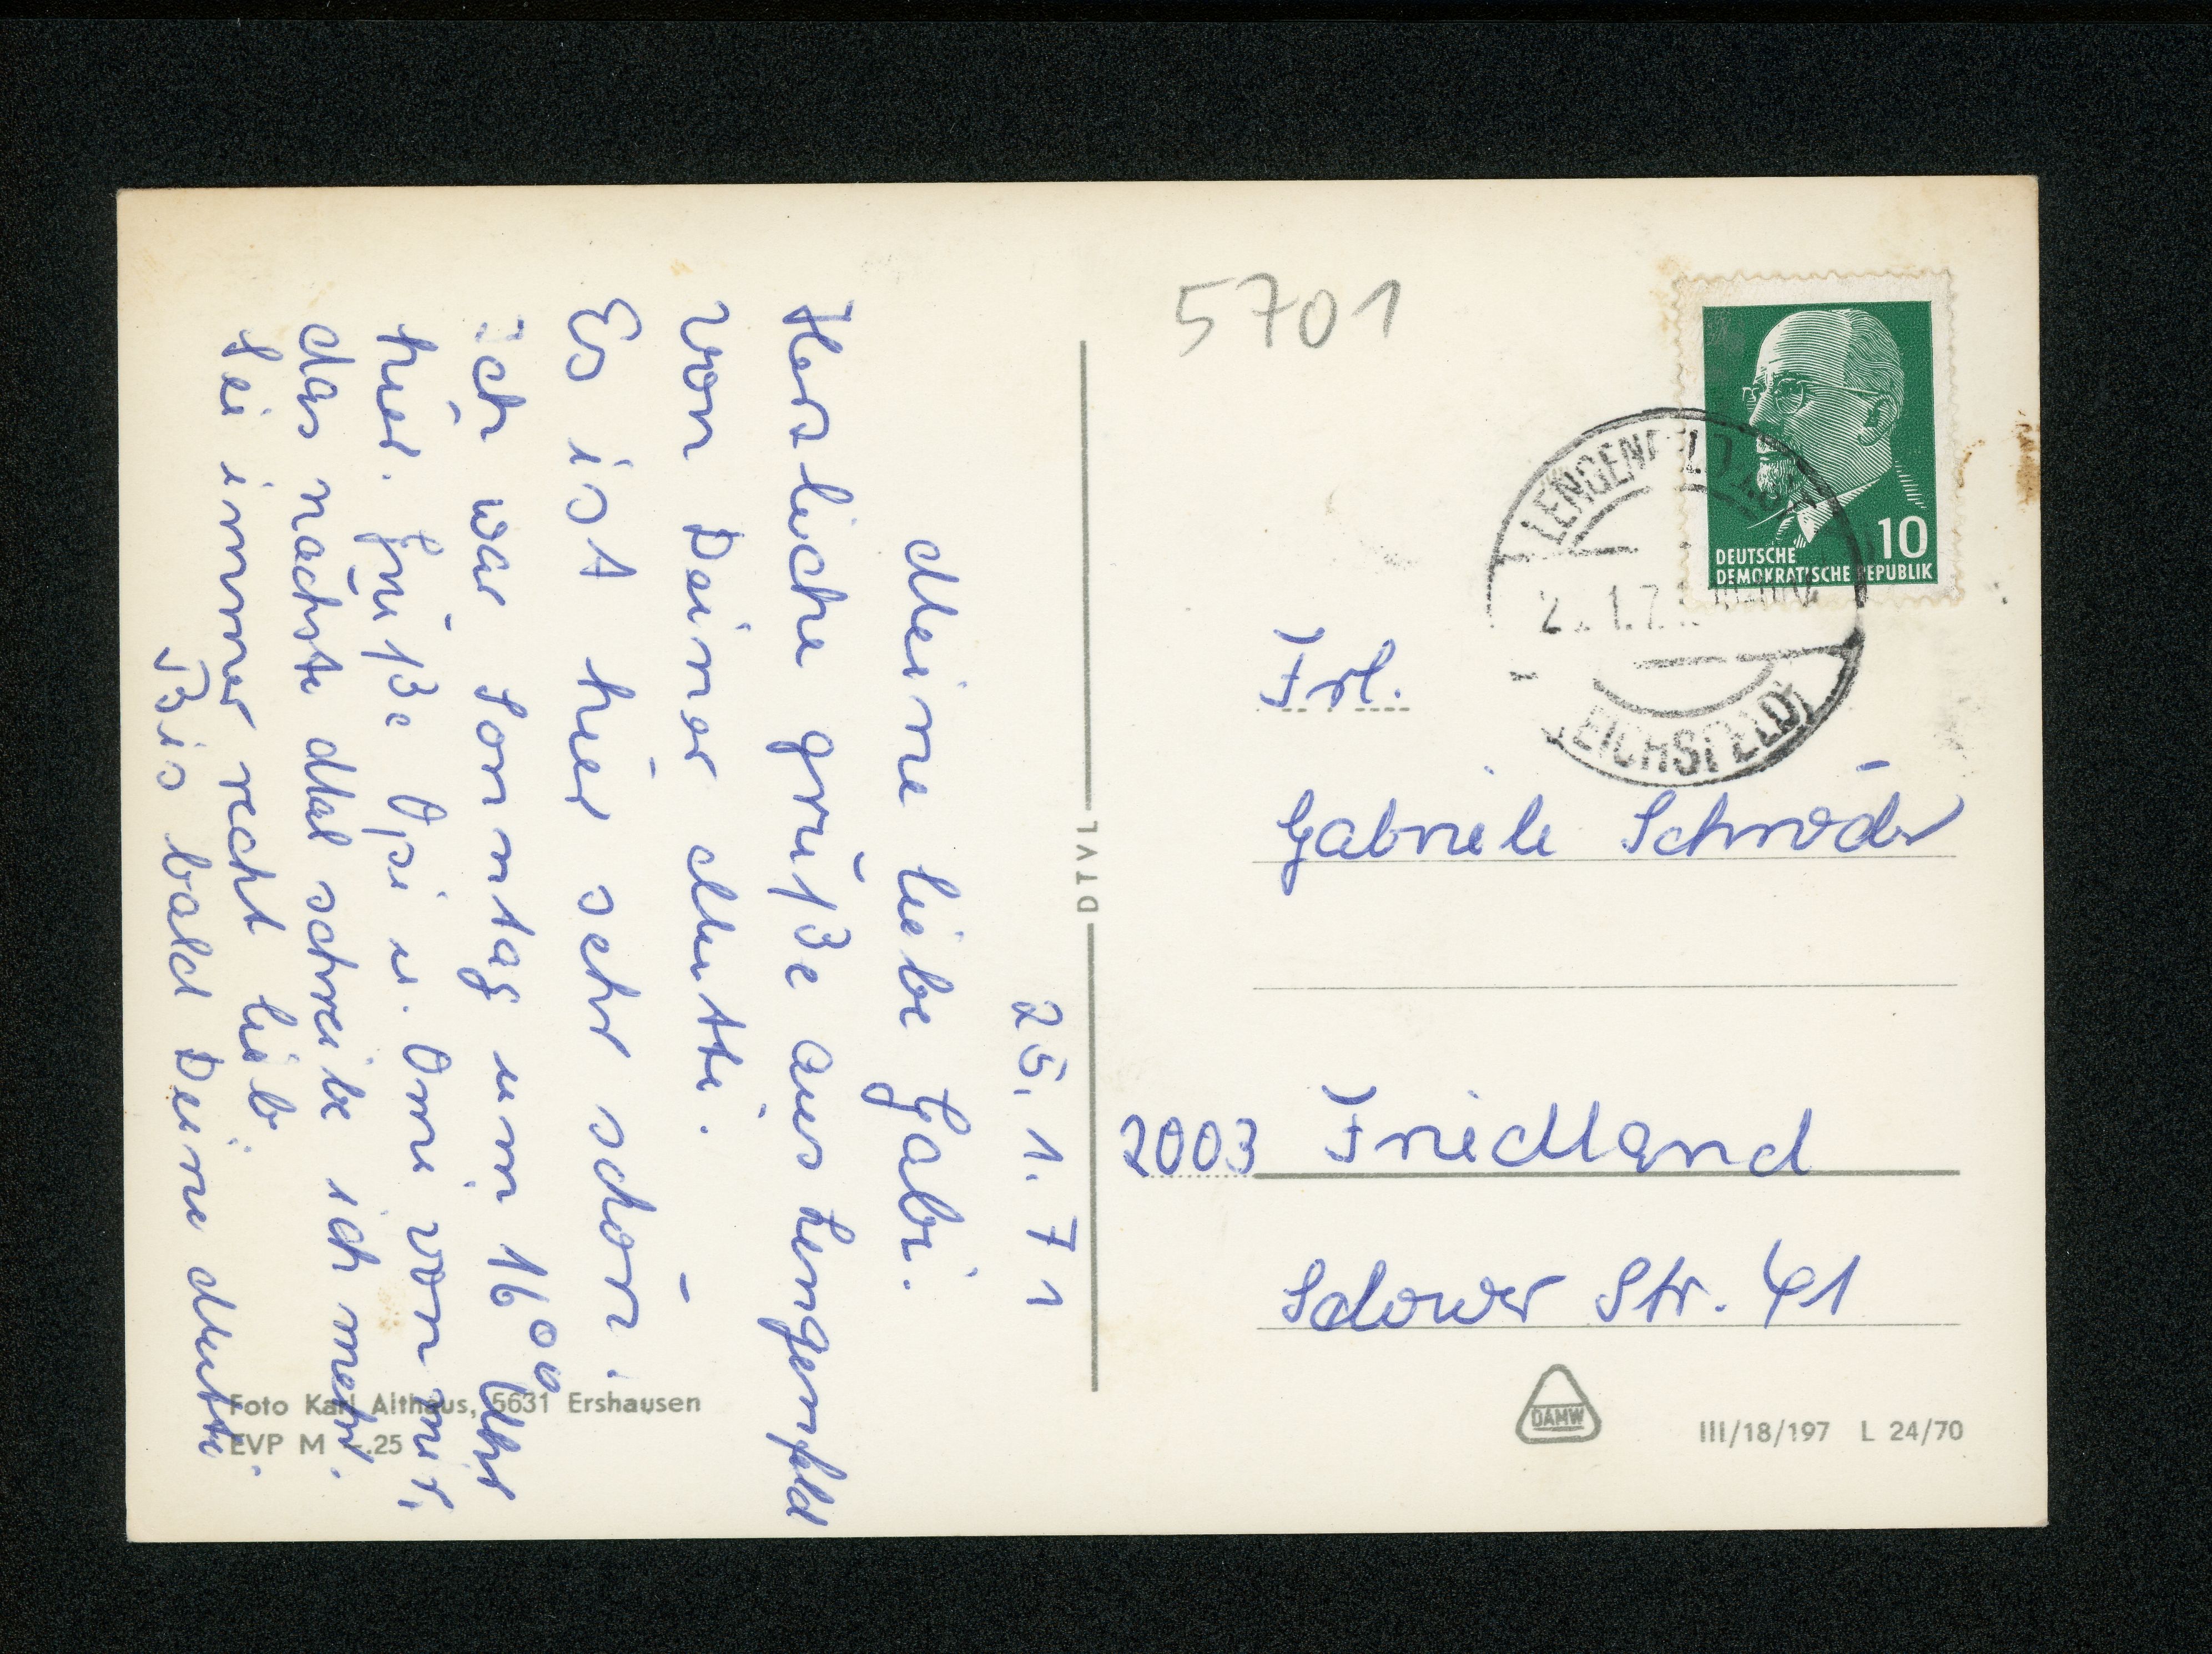 25.1.71
Meine liebe Gabi.
Herzliche Grüße aus Lengenfeld
von Deiner Mutti.
Es ist hier sehr schön.
ich war Sonntag um 16⁰⁰ Uhr
hier. Grüße Opi u. Omi von mir,
das nächste Mal schreibe ich mehr.
Sei immer recht lieb.
Bis bald Deine Mutti.
Foto Karl Althaus, 5631 Ershausen
EVP M -.25
DTVL
5701
10
DEUTSCHE
DEMOKRATISCHE REPUBLIK
LENGENFELD
EICHSFELD
Frl.
Gabriele Schröder
2003 Friedland
Str. 41
DAMW
III/18/197 L 24/70